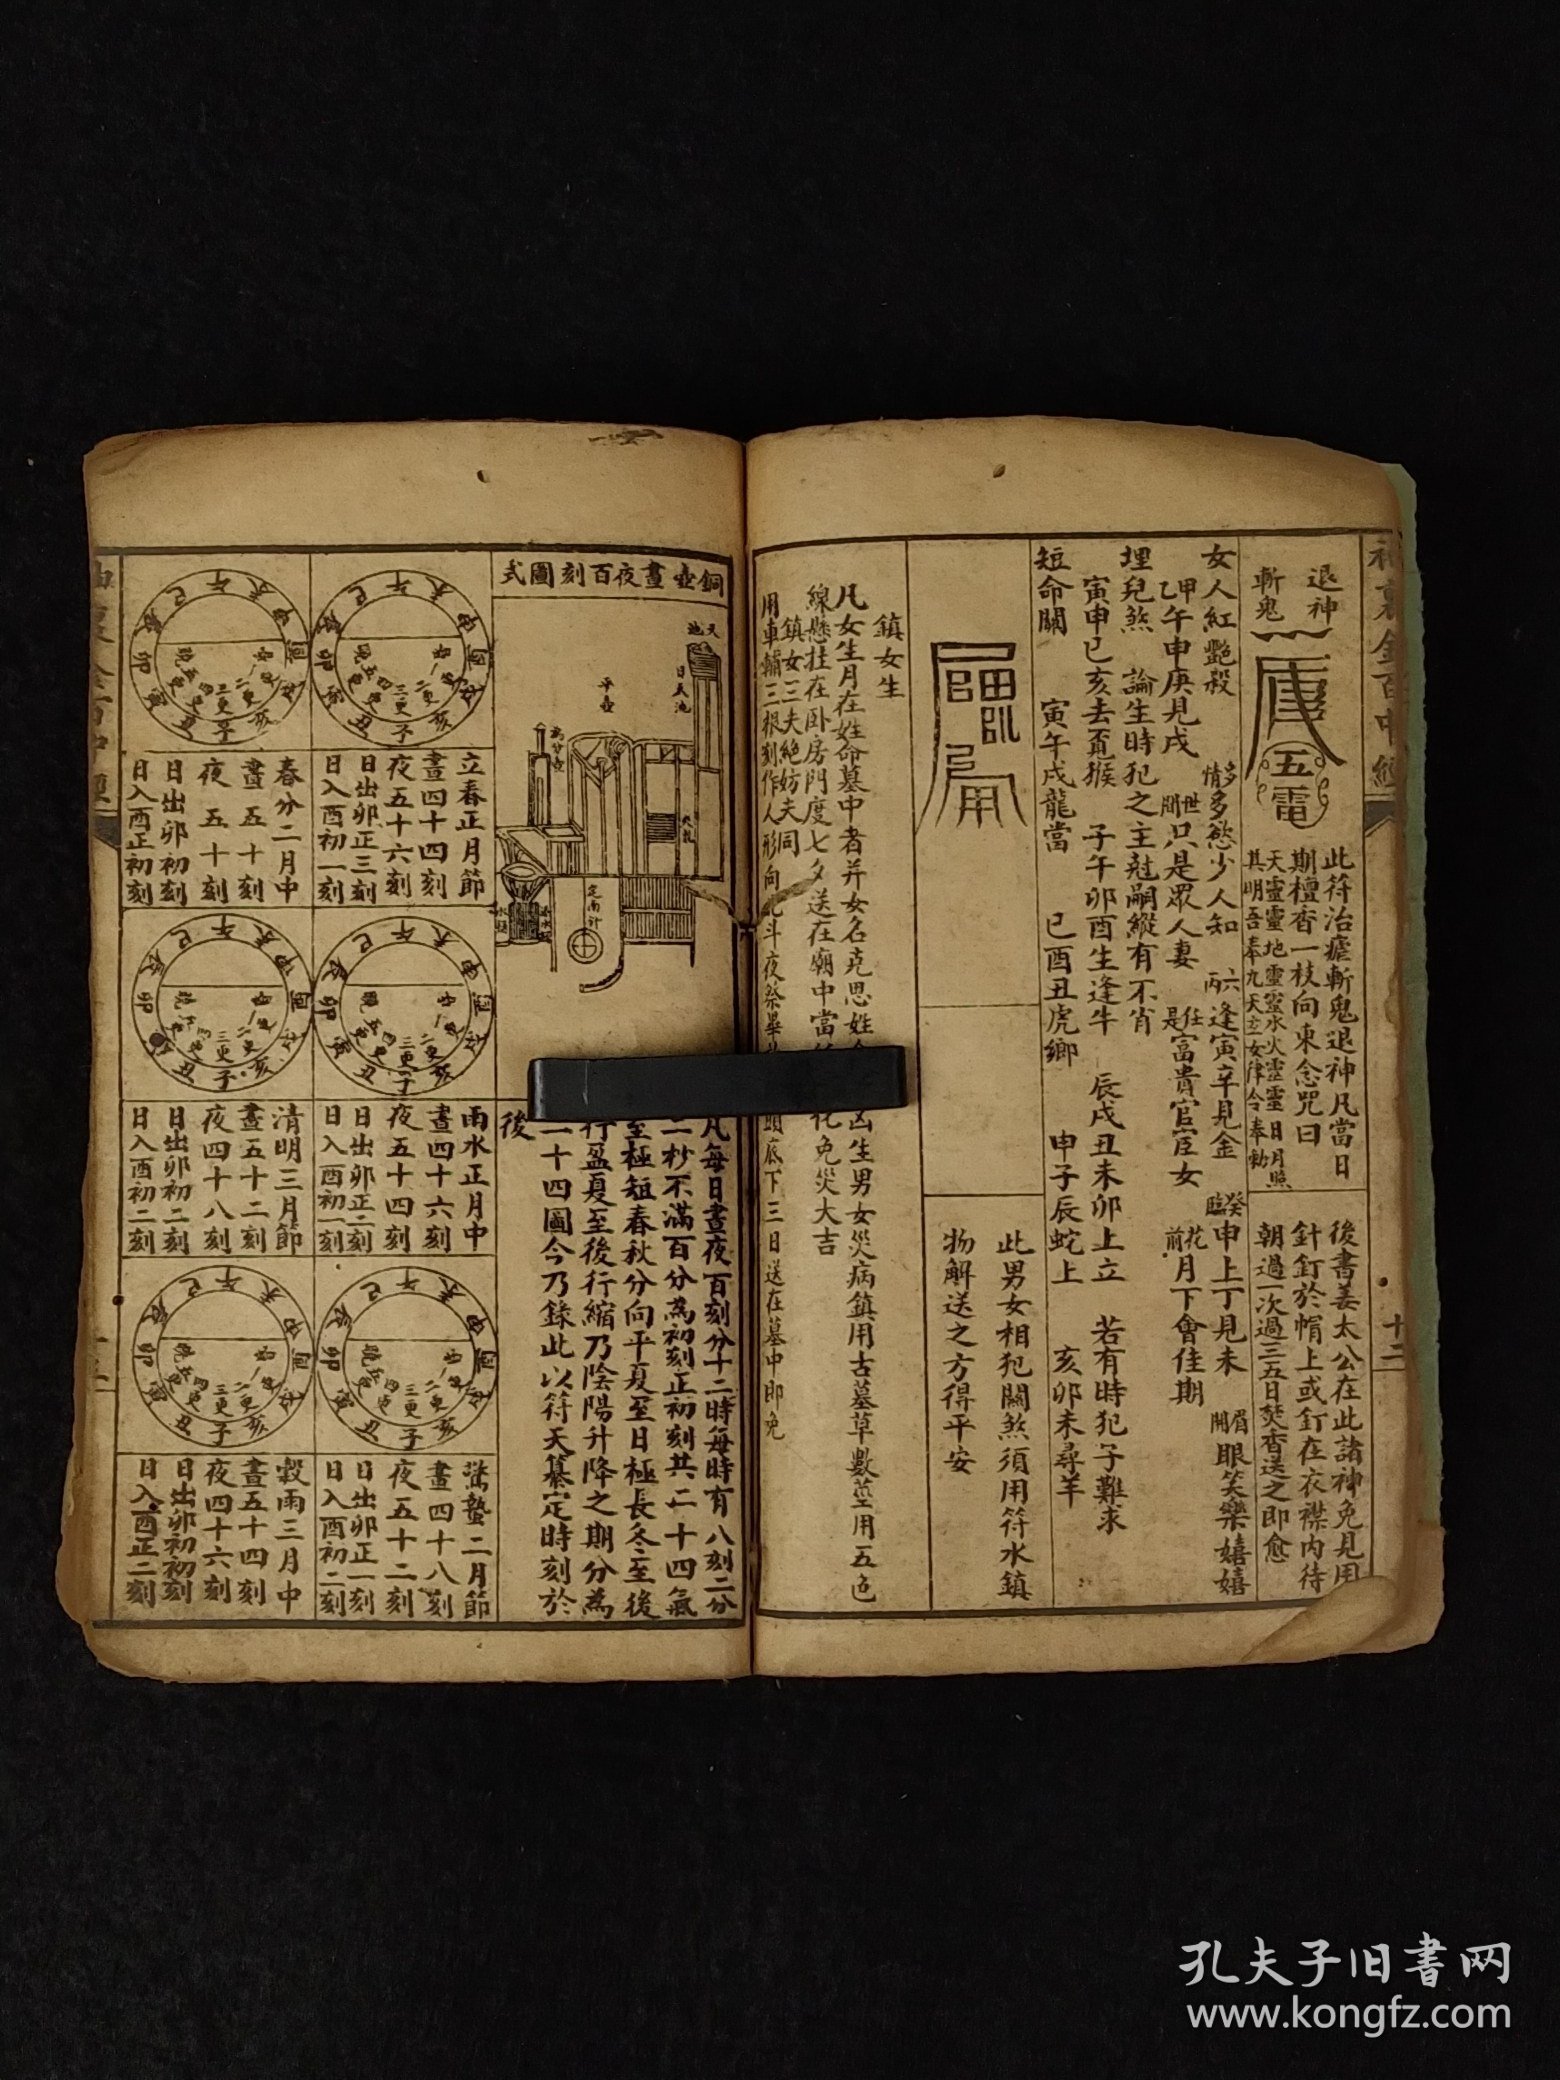 退神
斬鬼
唐
五雷
此符治瘧斬鬼退神凡當日
期檀香一枝向東念咒曰
天靈靈地靈靈水火靈靈日月照
其明吾奉九天玄女律令奉勅
後書姜太公在此諸神免見用
針釘於帽上或釘在衣襟內待
朝過一次過三五日焚香送之即愈
十二
女人紅艷殺 情多多慾少人知 六丙逢寅辛見金 癸臨申上丁見未 眉開眼笑樂嬉嬉
甲乙午申庚見戌 世間只是眾人妻 任是富貴宦臣女 花前月下會佳期
埋兒煞 論生時犯之主尅嗣縱有不肖
寅申巳亥去覔猴 子午卯酉生逢牛 辰戌丑未卯上立 若有時犯子難求
短命關 寅午戌龍當 巳酉丑虎鄉 申子辰蛇上 亥卯未尋羊
此男女相犯關煞須用符水鎮
物解送之方得平安
鎮女生
凡女生月在姓命墓中者并女名克恩姓
凶生男女災病鎮用古墓草數莖用五色
線懸挂在卧房門度七夕送在廟中當
化免災大吉
鎮女三夫絶妨夫同
用車輔三根刻作人形向北斗夜祭畢
頭底下三日送在墓中即免
銅壺晝夜百刻圖式
天池
日天池
平壺
定南針
凡每日晝夜百刻分十二時每時有八刻二分
二秒不滿百分為初刻正初刻共二十四氣
至極短春秋分向平夏至日極長冬至後
行盈夏至後行縮乃陰陽升降之期分為
二十四圖今乃錄此以符天纂定時刻於
後
立春正月節
晝四十四刻
夜五十六刻
日出卯正三刻
日入酉初一刻
雨水正月中
晝四十六刻
夜五十四刻
日出卯正二刻
日入酉初一刻
驚蟄二月節
晝四十八刻
夜五十二刻
日出卯正一刻
日入酉初二刻
春分二月中
晝五十刻
夜五十刻
日出卯初刻
日入酉正初刻
清明三月節
晝五十二刻
夜四十八刻
日出卯初二刻
日入酉初二刻
穀雨三月中
晝五十四刻
夜四十六刻
日出卯初初刻
日入酉正二刻
孔夫子旧书网
www.kongfz.com